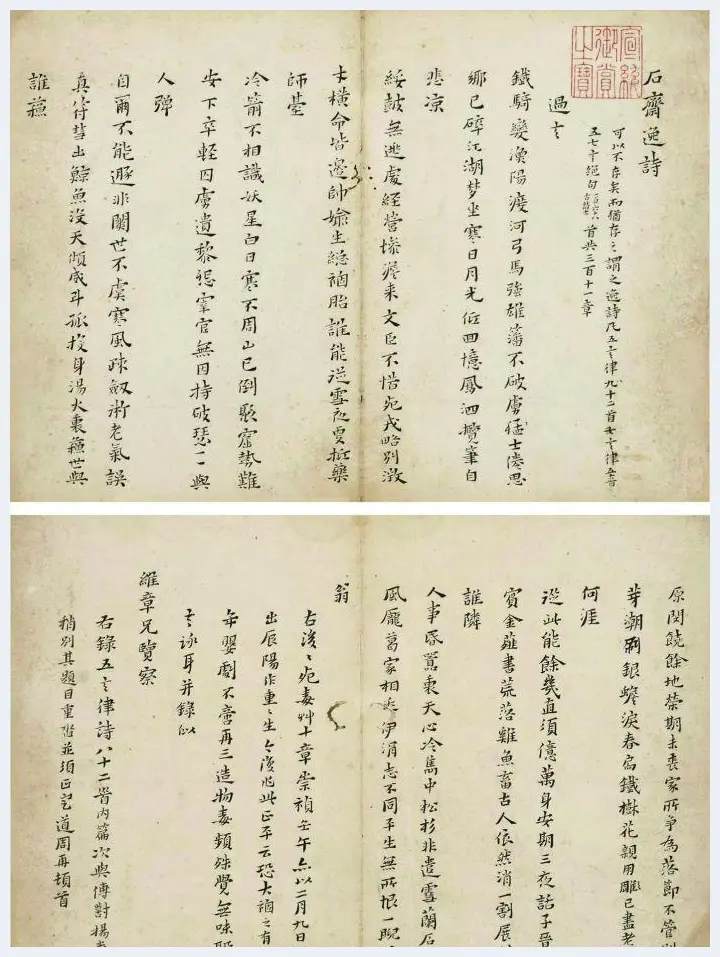 石齋逸詩
可以不存矣而猶存之謂之逸詩凡五言律九十二首七言律
五七言絕句
首共三百十一章
宣統御賞之寶
過
鐵騎變漁陽渡河弓馬強雄藩不破虜猛士倦思
鄉已碎江湖夢坐寒日月光低回憶鳳泗攬筆自
悲凉
綏鼓無逃處經營壕瀣來文臣不惜死戎略別徵
才橫命皆邊帥媮生總禍胎誰能逆雪夜更掃藥
師臺
冷箭不相識妖星白日寒不周山已倒聚窟勢難
安下卒輕囚虜遺黎怨宰官無因持破瑟一一與
人彈
自爾不能遯非關世不虞寒風疎劔術老氣誤
真符彗出鯨魚沒天傾威斗孤投身湯火裏蘓世與
誰蘓
原閔饒餘地榮期未喪家所爭為落節不管
芽潮銀蠟淚春鐵樹花親用雕已盡老
何涯
從此能餘幾直須億萬身安期三夜話子晉
賓金薤書荒落雞魚畜古人依然消一割展
誰隣
人事昏囂裏天心冷雋中松杉非遣雪蘭石
風龐葛家相伊涓志不同平生無所恨一睨
翁
右浚〻死毒艸十章崇禎壬午以二月九日
出辰陽作重〻生〻浚此正平云恐大禍之有
年嬰劇不啻再三造物毒頻殊覺無味
言詠耳并錄似
維章兄覽察
右錄五言律詩八十二首內篇次與傳對揚
稍別其題目重沓並須正定道周再頓首